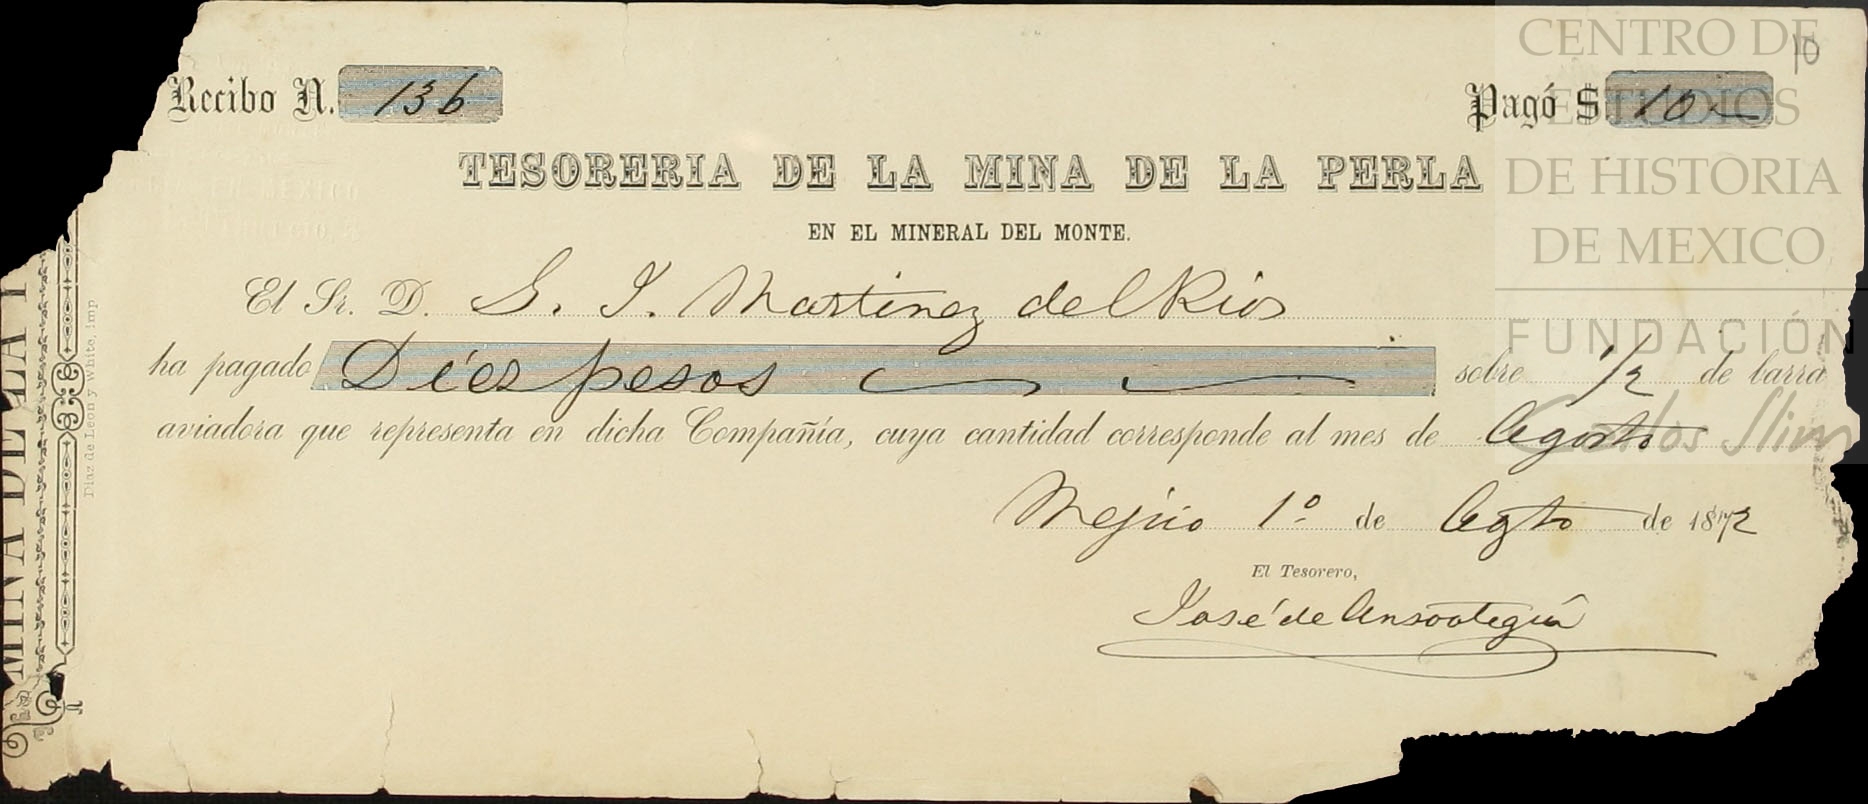 10
Recibo N. 136
Pagó $ 10
TESORERIA DE LA MINA DE LA PERLA
EN EL MINERAL DEL MONTE.
El Sr. D. G. I. Martinez del Rio
ha pagado Diez pesos sobre 1/2 de barra
aviadora que representa en dicha Compañía, cuya cantidad corresponde al mes de Agosto
Mejico 1º de Agto de 1872
El Tesorero,
José de Ansoategui
MINA DE LA P
Diaz de Leon y White, imp
CENTRO DE
ESTUDIOS
DE HISTORIA
DE MEXICO
FUNDACIÓN
Carlos Slim